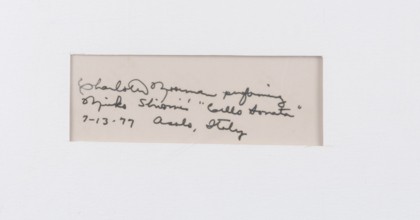 Charlotte Moorman performing
Mieko Shiomi's "Cello Sonata"
7-13-77 Asolo, Italy